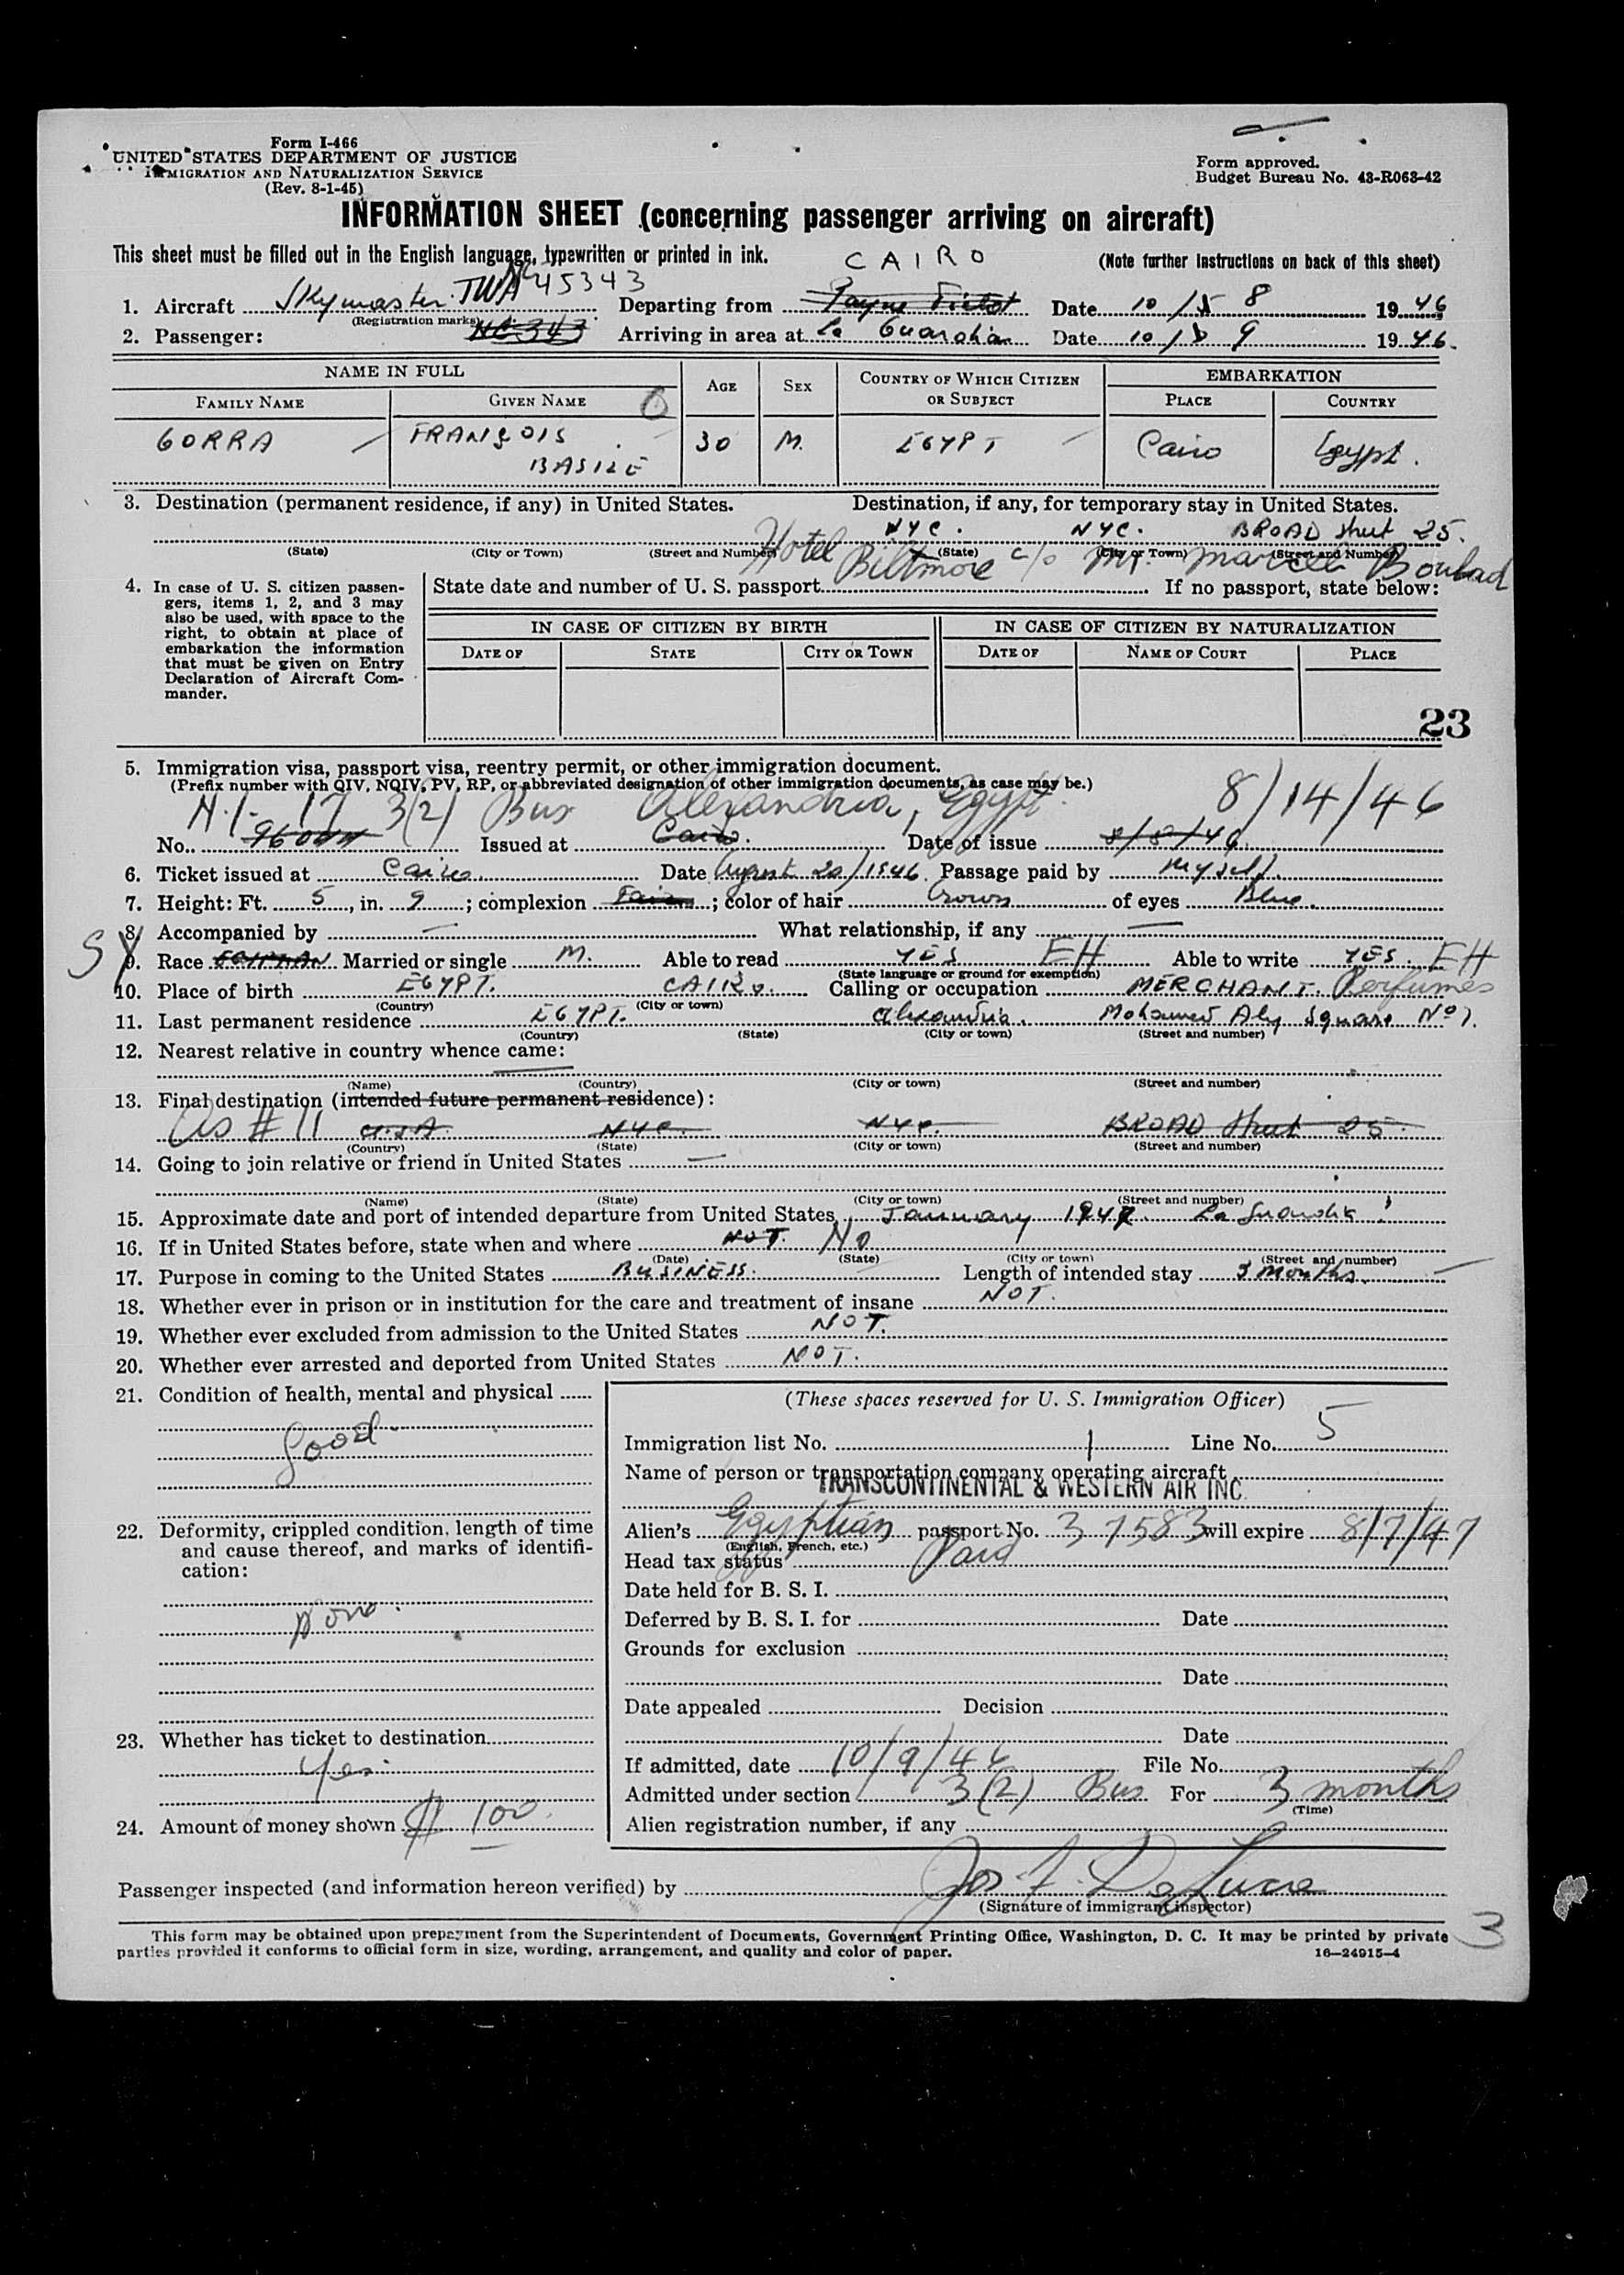 Form I-466
UNITED STATES DEPARTMENT OF JUSTICE
IMMIGRATION AND NATURALIZATION SERVICE
(Rev. 8-1-45)
Form approved.
Budget Bureau No. 43-R063-42
INFORMATION SHEET (concerning passenger arriving on aircraft)
This sheet must be filled out in the English language, typewritten or printed in ink.
CAIRO
(Note further instructions on back of this sheet)
1. Aircraft Skymaster TWA NC 45343 Departing from Payne Field Date 10/5 8 1946
(Registration marks) NC 343
2. Passenger: Arriving in area at La Guardia Date 10/8 9 1946.
NAME IN FULL AGE SEX COUNTRY OF WHICH CITIZEN OR SUBJECT EMBARKATION
FAMILY NAME GIVEN NAME PLACE COUNTRY
GORRA FRANÇOIS BASILE 30 M. EGYPT Cairo Egypt.
3. Destination (permanent residence, if any) in United States. Destination, if any, for temporary stay in United States.
NYC. NYC. BROAD Street 25.
(State) (City or Town) (Street and Number) (State) (City or Town) (Street and Number)
Hotel Biltmore c/o Mr. Boulad
4. In case of U. S. citizen passengers, items 1, 2, and 3 may also be used, with space to the right, to obtain at place of embarkation the information that must be given on Entry Declaration of Aircraft Commander.
State date and number of U. S. passport If no passport, state below:
IN CASE OF CITIZEN BY BIRTH IN CASE OF CITIZEN BY NATURALIZATION
DATE OF STATE CITY OR TOWN DATE OF NAME OF COURT PLACE
23
5. Immigration visa, passport visa, reentry permit, or other immigration document.
(Prefix number with QIV, NQIV, PV, RP, or abbreviated designation of other immigration documents, as case may be.)
N.I. 17 3(2) Bus Alexandria, Egypt 8/14/46
No. Issued at Cairo. Date of issue 8/8/46.
6. Ticket issued at Cairo. Date August 20/1946. Passage paid by Myself.
7. Height: Ft. 5, in. 9; complexion Fair; color of hair brown of eyes Blue.
8. Accompanied by — What relationship, if any —
SY
9. Race EGYPTIAN Married or single M. Able to read YES EH Able to write YES. EH
(State language or ground for exemption)
10. Place of birth EGYPT. CAIRO. Calling or occupation MERCHANT. Perfumes
(Country) (City or town)
11. Last permanent residence EGYPT. Alexandria. Mohamed Aly Square No 7.
(Country) (State) (City or town) (Street and number)
12. Nearest relative in country whence came:
(Name) (Country) (City or town) (Street and number)
13. Final destination (intended future permanent residence):
As # 11 U.S.A. NYC. NYC. BROAD Street 25.
(Country) (State) (City or town) (Street and number)
14. Going to join relative or friend in United States —
(Name) (State) (City or town) (Street and number)
15. Approximate date and port of intended departure from United States January 1947. La Guardia
16. If in United States before, state when and where NOT. No
(Date) (State) (City or town) (Street and number)
17. Purpose in coming to the United States BUSINESS. Length of intended stay 3 months.
18. Whether ever in prison or in institution for the care and treatment of insane NOT.
19. Whether ever excluded from admission to the United States NOT.
20. Whether ever arrested and deported from United States NOT.
21. Condition of health, mental and physical
Good
22. Deformity, crippled condition, length of time and cause thereof, and marks of identification:
None.
23. Whether has ticket to destination
Yes.
24. Amount of money shown $ 100.
(These spaces reserved for U. S. Immigration Officer)
Immigration list No. 1 Line No. 5
Name of person or transportation company operating aircraft
TRANSCONTINENTAL & WESTERN AIR INC.
Alien's Egyptian passport No. 37583 will expire 8/7/47
(English, French, etc.)
Head tax status Paid
Date held for B. S. I.
Deferred by B. S. I. for Date
Grounds for exclusion
Date
Date appealed Decision
Date
If admitted, date 10/9/46 File No.
Admitted under section 3(2) Bus For 3 months
(Time)
Alien registration number, if any
Passenger inspected (and information hereon verified) by Jos. F. DeLuca
(Signature of immigrant inspector)
This form may be obtained upon prepayment from the Superintendent of Documents, Government Printing Office, Washington, D. C. It may be printed by private
parties provided it conforms to official form in size, wording, arrangement, and quality and color of paper.
16—24915-4
3